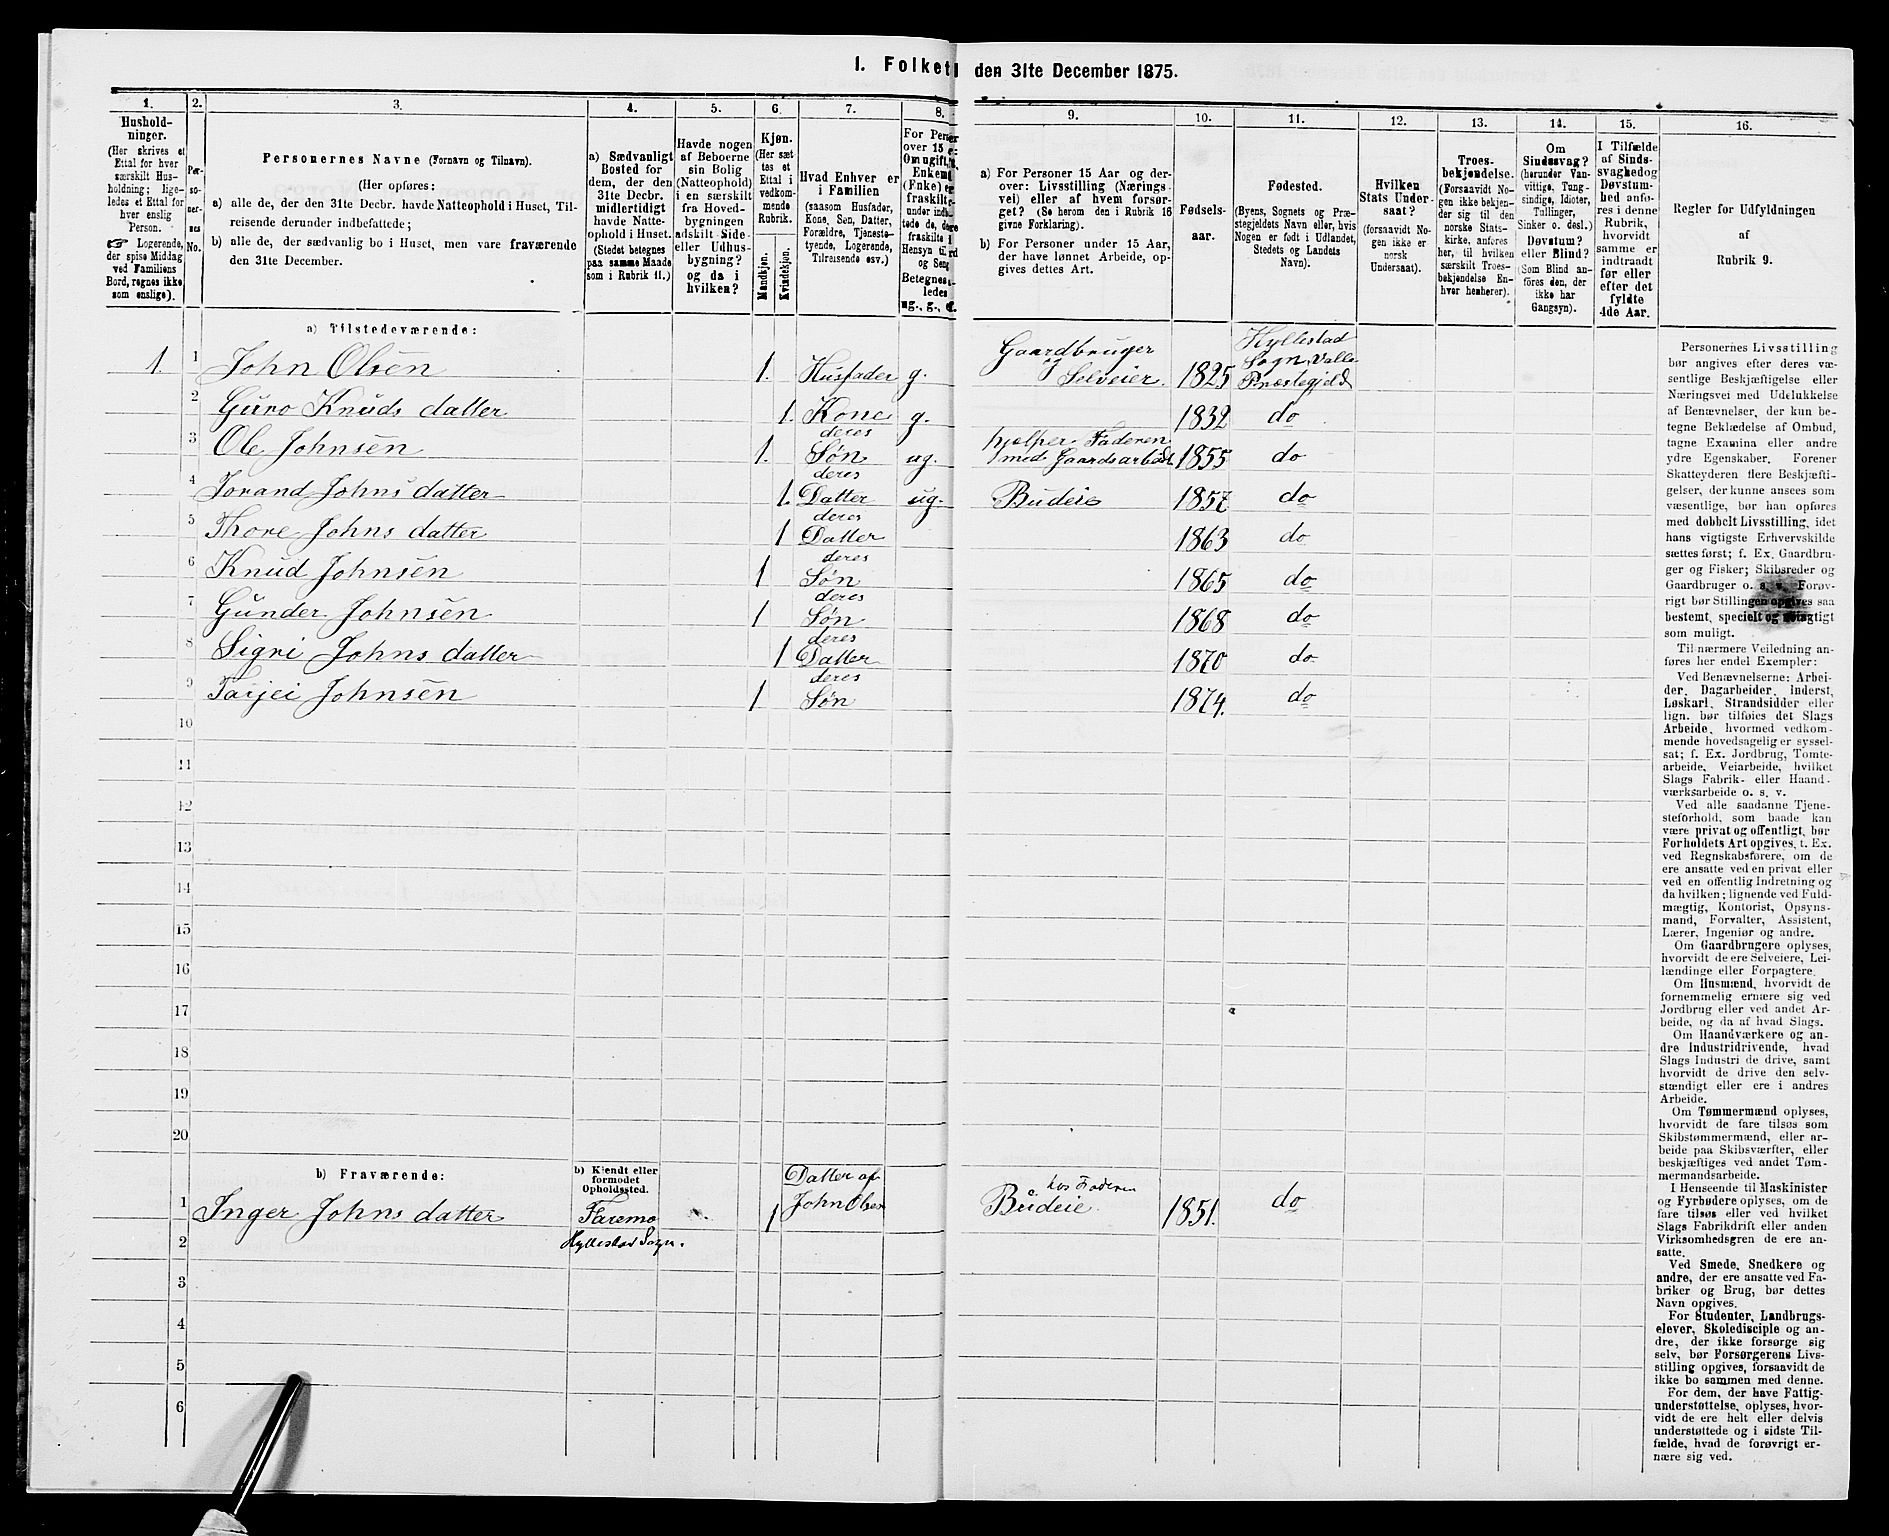 I. Folket den 31te December 1875.
1.
2.
3.
4.
5.
6.
7.
8.
9.
10.
11.
12.
13.
14.
15.
16.
Hushold-
ninger.
(Her skrives et
Ettal for hver
særskilt Hus-
holdning; lige-
ledes et Ettal for
hver enslig
Person.
☞ Logerende,
der spise Middag
ved Familiens
Bord, regnes ikke
som enslige).
Per-
so-
ner-
nes
No.
Personernes Navne (Fornavn og Tilnavn).
(Her opføres:
a) alle de, der den 31te Decbr. havde Natteophold i Huset, Til-
reisende derunder indbefattede;
b) alle de, der sædvanlig bo i Huset, men vare fraværende
den 31te December.
a) Sædvanligt
Bosted for
dem, der den
31te Decbr.
midlertidigt
havde Natte-
ophold i Huset.
(Stedet betegnes
paa samme Maade
som i Rubrik 11.)
Havde nogen
af Beboerne
sin Bolig
(Natteophold)
i en særskilt
fra Hoved-
bygningen
adskilt Side-
eller Udhus-
bygning?
og da i
hvilken?
Kjøn.
(Her sæt-
tes et
Ettal i
vedkom-
mende
Rubrik.
Mandkjøn.
Kvindekjøn.
Hvad Enhver er
i Familien
(saasom Husfader,
Kone, Søn, Datter,
Forældre, Tjeneste-
tyende, Logerende,
Tilreisende osv.)
For Perser
over 15
Om ugift,
Enkem
(Fnke)
fraskilt
Hensyn til
og Seng
Betegnes
ledes
ug., g.,
a) For Personer 15 Aar og der-
over: Livsstilling (Nærings-
vei) eller af hvem forsør-
get? (Se herom den i Rubrik 16
givne Forklaring).
b) For Personer under 15 Aar,
der have lønnet Arbeide, op-
gives dettes Art.
Fødsels-
aar.
Fødested.
(Byens, Sognets og Præ-
stegjeldets Navn eller, hvis
Nogen er født i Udlandet,
Stedets og Landets
Navn).
Hvilken
Stats Under-
saat?
(forsaavidt No-
gen ikke er
norsk
Undersaat).
Troes-
bekjendelse.
(Forsaavidt No-
gen ikke bekjen-
der sig til den
norske Stats-
kirke, anføres
her, til hvilken
særskilt Troes-
bekjendelse En-
hver henhører).
Om
Sindssvag?
(herunder Van-
vittige, Tung-
sindige, Idioter,
Tullinger,
Sinker o. desl.)
Døvstum?
eller Blind?
(Som Blind an-
føres den, der
ikke har
Gangsyn).
I Tilfælde
af Sinds-
svaghedog
Døvstum-
hed anfø-
res i denne
Rubrik,
hvorvidt
samme er
indtraadt
før eller
efter det
fyldte
4de Aar.
Regler for Udfyldningen
af
Rubrik 9.
a) Tilstedeværende:
1 1 John Olsen 1. Husfader g. Gaardbruger og Selveier. 1825 Hyllestad Sogn, Valle Præstegjeld
2 Guro Knuds datter 1. Kone g. 1832 do
3 Ole Johnsen 1. deres Søn ug. hjelper Faderen med Gaardsarbeidet 1855 do
4 Jorand Johns datter 1. deres Datter ug. Budeie 1857 do
5 Thore Johns datter 1 deres Datter 1863 do
6 Knud Johnsen 1 deres Søn 1865 do
7 Gunder Johnsen 1 deres Søn 1868 do
8 Sigri Johns datter 1 deres Datter 1870 do
9 Tarjei Johnsen 1 deres Søn 1874. do
10
11
12
13
14
15
16
17
18
19
20
b) Fraværende:
b) Kjendt eller
formodet
Opholdssted.
1 Inger Johns datter Faremo Hyllestad Sogn. 1 Datter af John Olsen Budeie hos Faderen 1851. do
2
3
4
5
6
Personernes Livsstilling
bør angives efter deres væ-
sentlige Beskjæftigelse eller
Næringsvei med Udelukkelse
af Benævnelser, der kun be-
tegne Beklædelse af Ombud,
tagne Examina eller andre
ydre Egenskaber. Forener
Skatteyderen flere Beskjæfti-
gelser, der kunne ansees som
væsentlige, bør han opføres
med dobbelt Livsstilling, idet
hans vigtigste Erhvervskilde
sættes først; f. Ex. Gaardbru-
ger og Fisker; Skibsreder og
Gaardbruger o. s. v. Forøv-
rigt bør Stillingen opgives saa
bestemt, specielt og nøiagtigt
som muligt.
Til nærmere Veiledning an-
føres her endel Exempler:
Ved Benævnelserne: Arbei-
der, Dagarbeider, Inderst,
Løskarl, Strandsidder eller
lign. bør tilføies det Slags
Arbeide, hvormed vedkom-
mende hovedsagelig er syssel-
sat; f. Ex. Jordbrug, Tomte-
arbeide, Veiarbeide, hvilket
Slags Fabrik- eller Haand-
værksarbeide o. s. v.
Ved alle saadanne Tjene-
steforhold, som baade kan
være privat og offentligt, bør
Forholdets Art opgives, t. Ex.
ved Regnskabsførere, om de
ere ansatte ved en privat eller
ved en offentlig Indretning og
da hvilken; lignende ved Fuld-
mægtig, Kontorist, Opsyns-
mand, Forvalter, Assistent,
Lærer, Ingeniør og andre.
Om Gaardbrugere oplyses,
hvorvidt de ere Selveiere, Lei-
lændinge eller Forpagtere.
Om Husmænd, hvorvidt de
fornemmelig ernære sig ved
Jordbrug eller ved andet Ar-
beide, og da af hvad Slags.
Om Haandværkere og an-
dre Industridrivende, hvad
Slags Industri de drive, samt
hvorvidt de drive den selv-
stændigt eller ere i andres
Arbeide.
Om Tømmermænd oplyses,
hvorvidt de fare tilsøs som
Skibstømmermænd, eller ar-
beide paa Skibsværfter, eller
beskjæftiges ved andet Tøm-
mermandsarbeide.
I Henseende til Maskinister
og Fyrbødere oplyses, om de
fare tilsøs eller ved hvilket
Slags Fabrikdrift eller anden
Virksomhedsgren de ere an-
satte.
Ved Smede, Snedkere og
andre, der ere ansatte ved Fa-
briker og Brug, bør dettes
Navn opgives.
For Studenter, Landbrugs-
elever, Skoledisciple og an-
dre, der ikke forsørge sig
selv, bør Forsørgerens Livs-
stilling opgives, forsaavidt de
ikke bo sammen med denne.
For dem, der have Fattig-
understøttelse, oplyses, hvor-
vidt de ere helt eller delvis
understøttede og i sidste Til-
fælde, hvad de forøvrigt er-
nære sig ved.